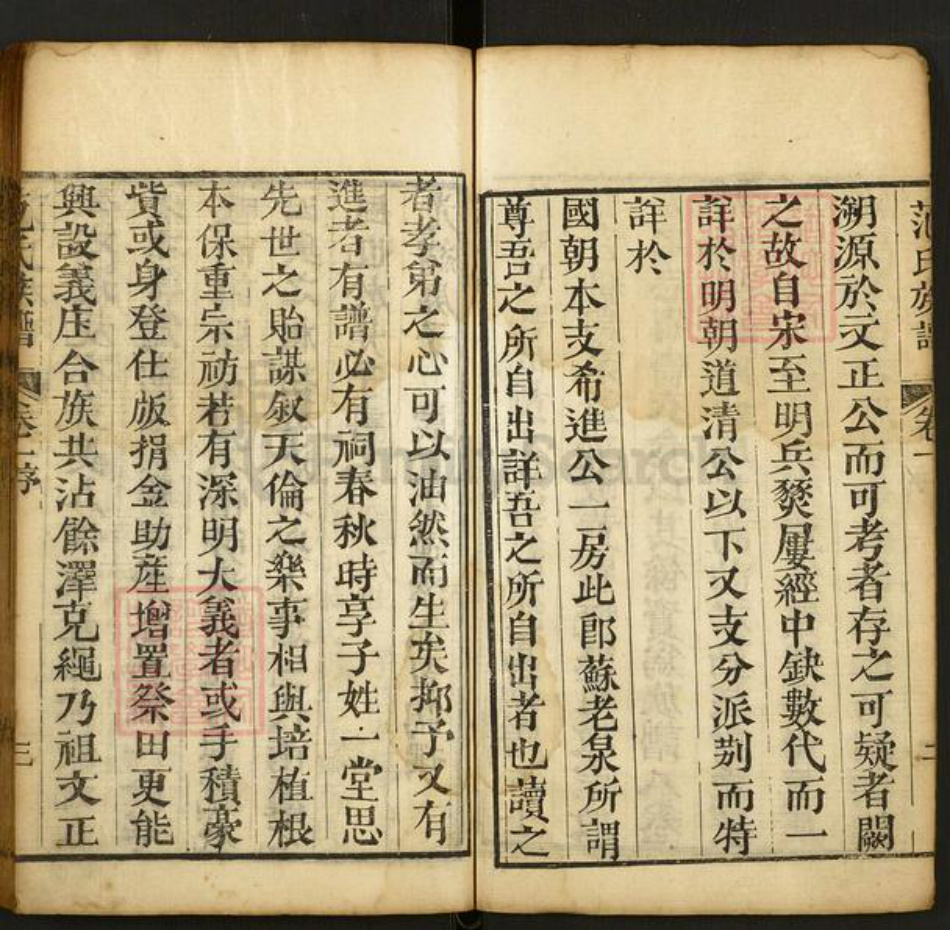 范氏族譜
卷一
二
溯源於文正公而可考者存之可疑者闕
之故自宋至明兵燹屢經中缺數代而一
詳於明朝道清公以下又支分派別而特
詳於
國朝本支希進公一房此卽蘇老泉所謂
尊吾之所自出詳吾之所自出者也讀之
者孝弟之心可以油然而生矣抑予又有
進者有譜必有祠春秋時享子姓一堂思
先世之貽謀敘天倫之樂事相與培植根
本保重宗祊若有深明大義者或手積豪
貲或身登仕版捐金助產增置祭田更能
興設義庄合族共沾餘澤克繩乃祖文正
氏族譜
卷一序
三